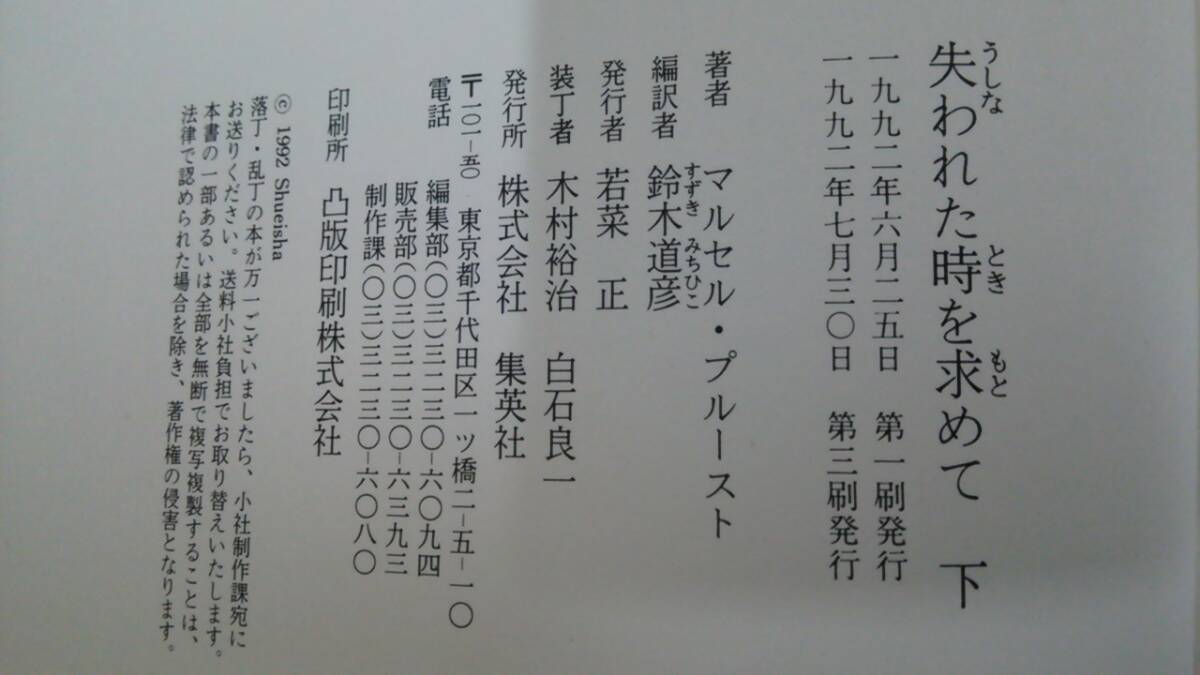 失われた時を求めて 下
うしな とき もと
一九九二年六月二五日 第一刷発行
一九九二年七月三〇日 第三刷発行
著者 マルセル・プルースト
編訳者 鈴木道彦
すずき みちひこ
発行者 若菜 正
装丁者 木村裕治 白石良一
発行所 株式会社 集英社
〒一〇一-五〇 東京都千代田区一ツ橋二-五-一〇
電話 編集部(〇三)三二三〇-六〇九四
販売部(〇三)三二三〇-六三九三
制作課(〇三)三二三〇-六〇八〇
印刷所 凸版印刷株式会社
© 1992 Shueisha
落丁・乱丁の本が万一ございましたら、小社制作課宛に
お送りください。送料小社負担でお取り替えいたします。
本書の一部あるいは全部を無断で複写複製することは、
法律で認められた場合を除き、著作権の侵害となります。